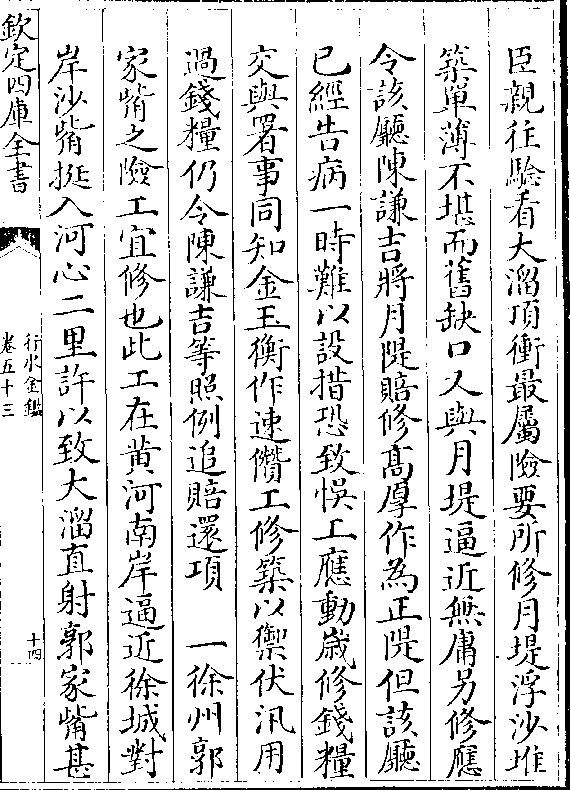 臣親徃驗看大溜頂衝最屬險要所修月堤浮沙堆
築單薄不堪而舊缺口又與月堤逼近無庸另修應
令該廳陳謙吉將月隄賠修髙厚作為正隄但該廳
已經告病一時難以設措恐致悞工應動歲修錢糧
交與署事同知金玉衡作速儹工修築以禦伏汛用
過錢糧仍令陳謙吉等照例追賠還項　一徐州郭
家嘴之險工宜修也此工在黄河南岸逼近徐城對
岸沙嘴挺入河心二里許以致大溜直射郭家嘴甚
欽定四庫全書
行水金鑑
卷五十三
十四